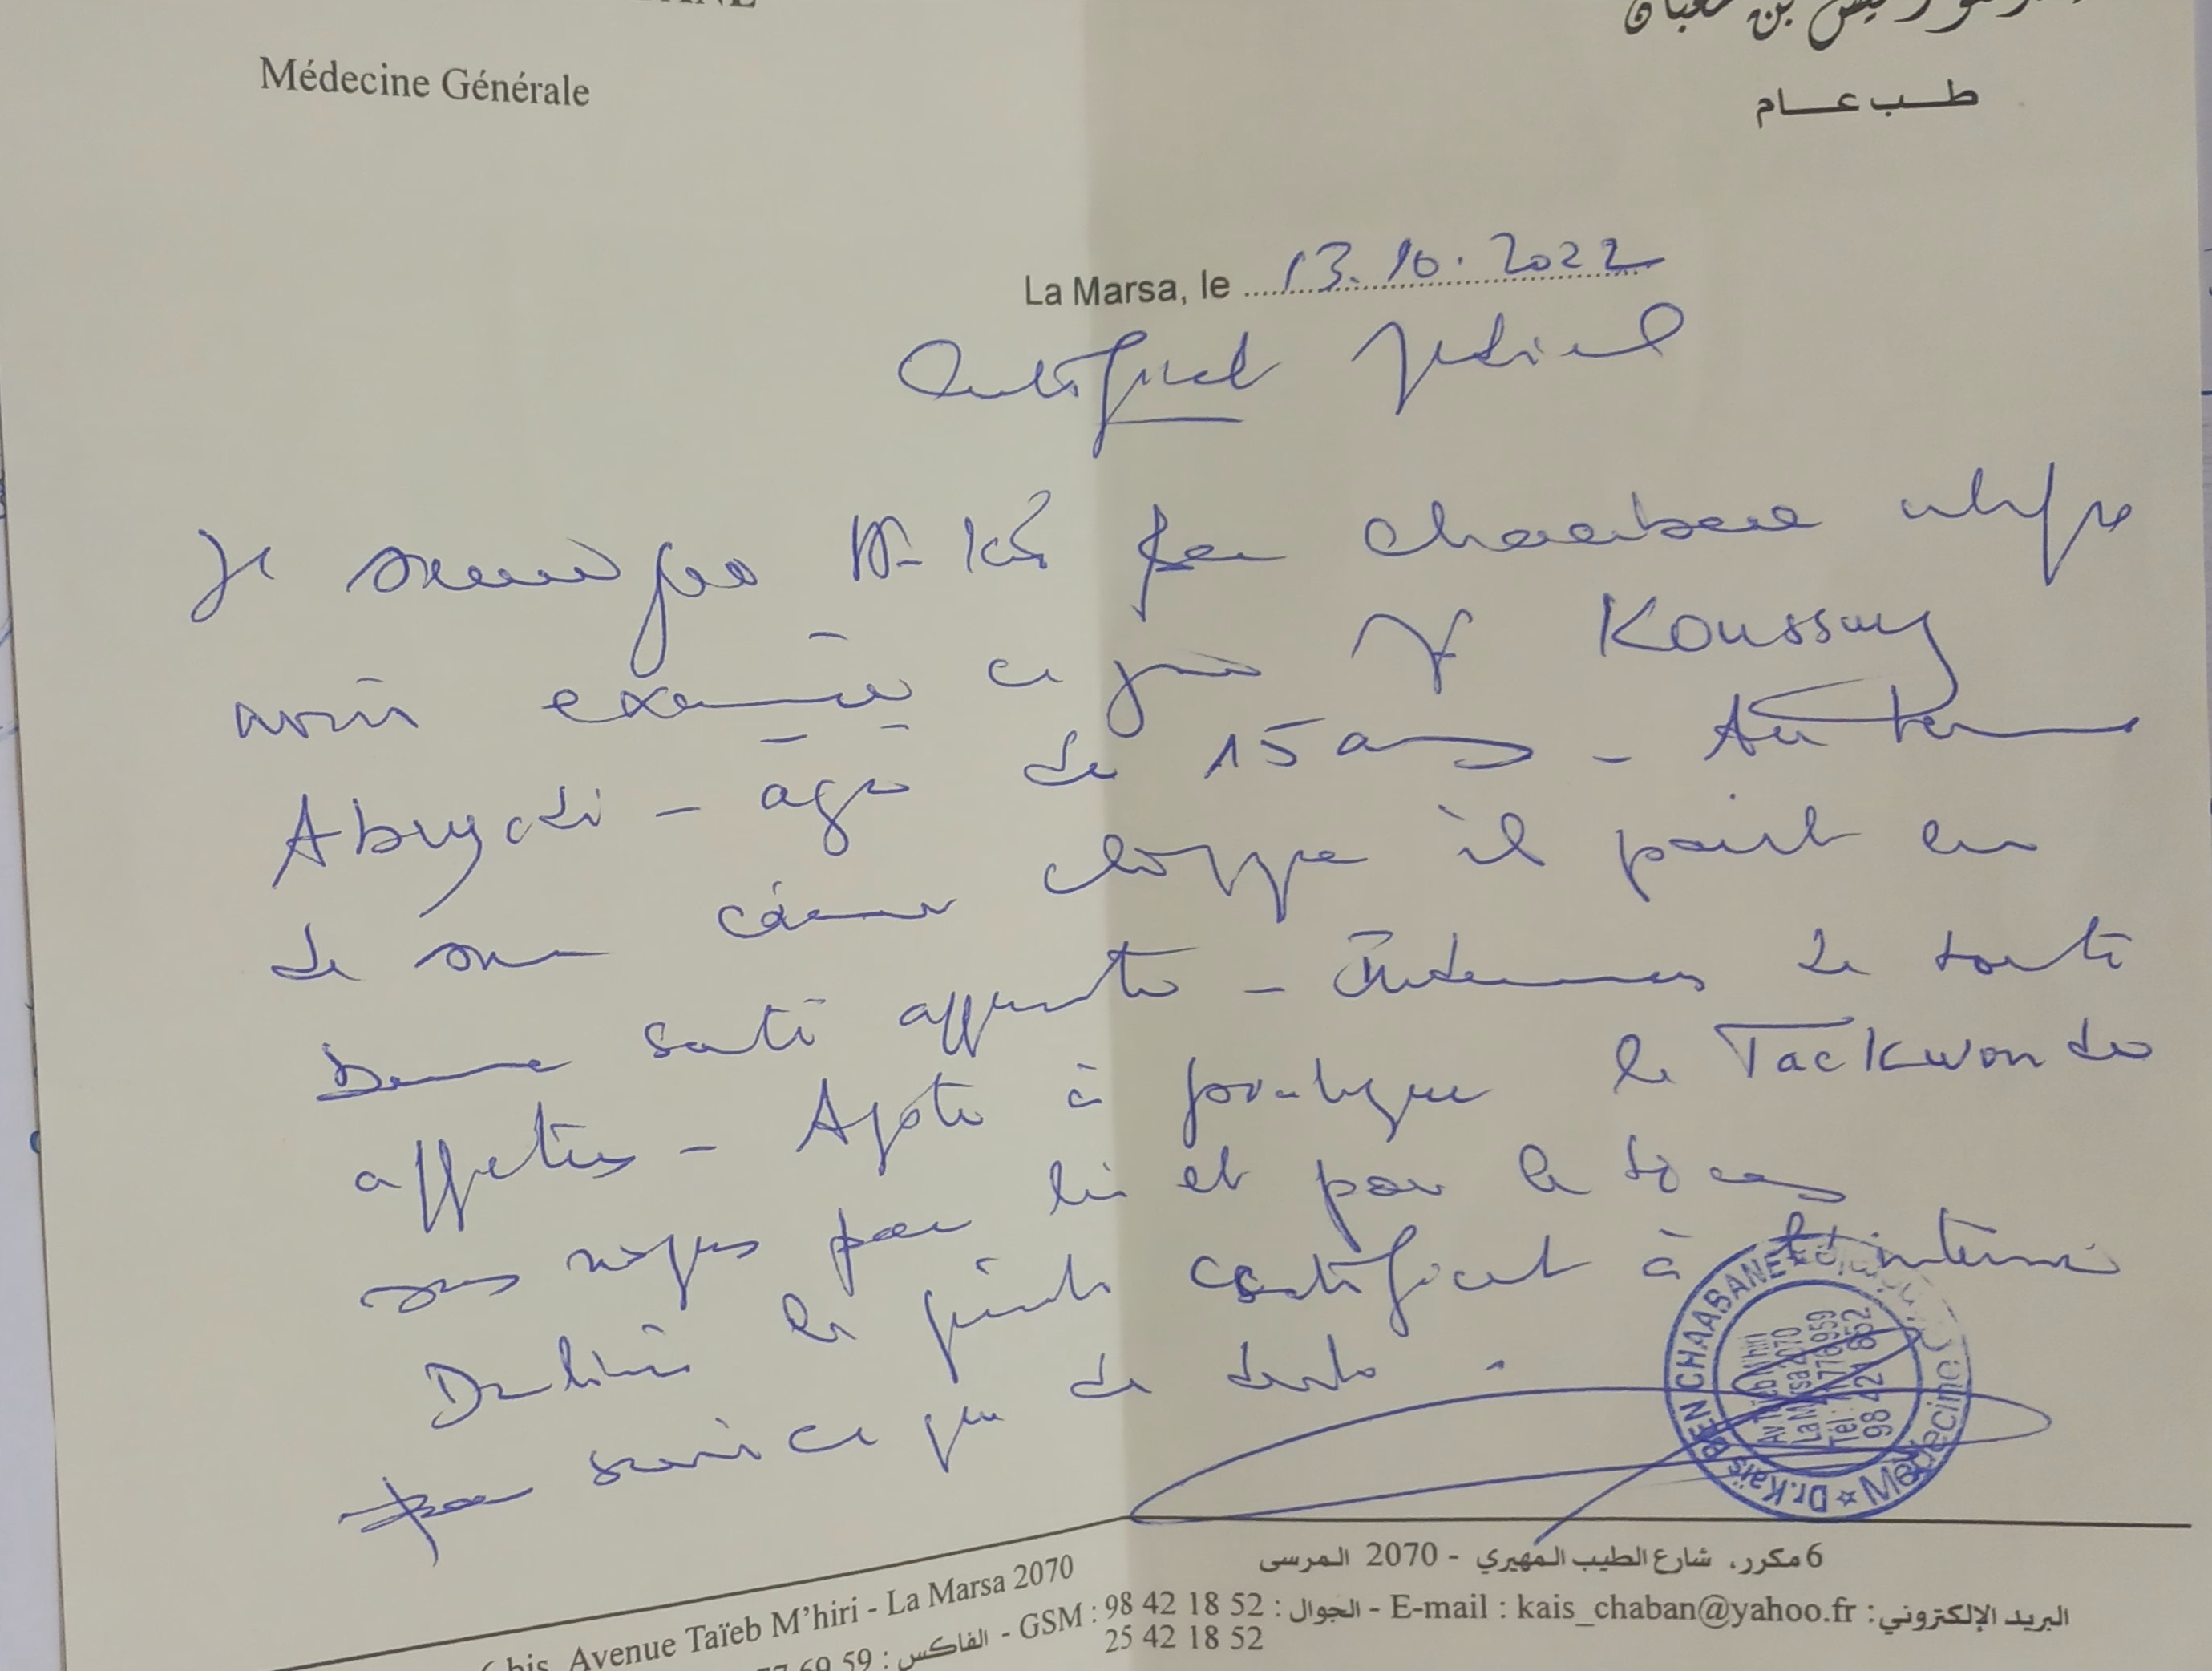 Médecine Générale
طب عام
La Marsa, le 13.10.2022
Certificat Médical
Je soussigné Dr Kais Ben Chaabane certifie
avoir examiné ce jour Mr Koussay
âgé de 15 ans - Au terme
de son examen clinique il paraît en
bonne santé apparente - Indemne de toute
affection - Apte à pratiquer le Taekwondo
sans risques pour lui et pour le
Délivré le présent certificat à l'intéressé
pour servir ce que de droit.
Dr. Kaïs BEN CHAABANE
Médecine
Av Taieb Mhiri
La Marsa 2070
98 421 852
bis, Avenue Taïeb M'hiri - La Marsa 2070
6 مكرر، شارع الطيب المهيري - 2070 المرسى
69 59 : الفاكس - GSM : 98 42 18 52 : الجوال - E-mail : kais_chaban@yahoo.fr : البريد الإلكتروني
25 42 18 52